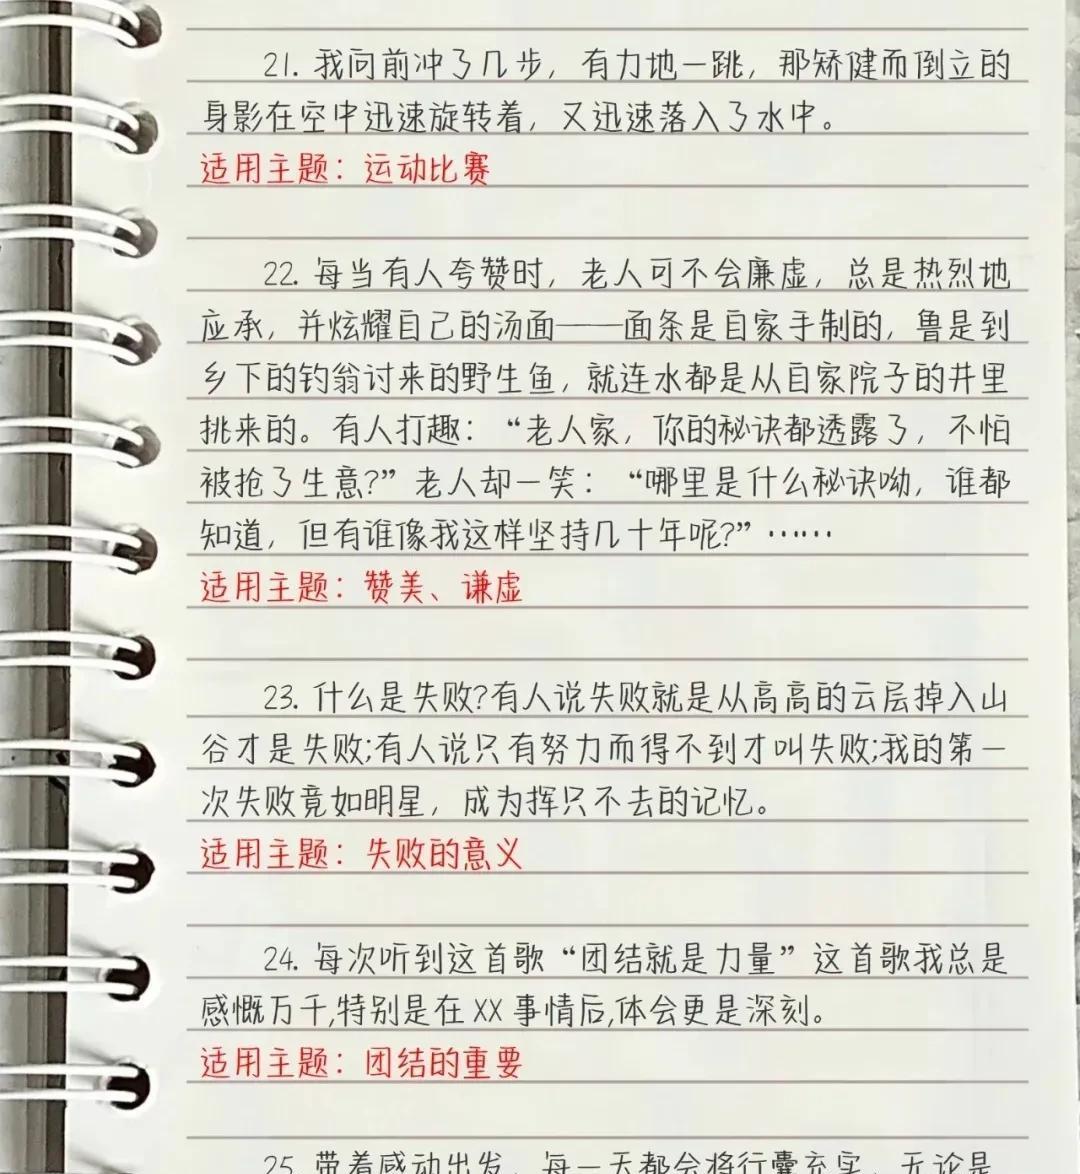 21. 我向前冲了几步，有力地一跳，那矫健而倒立的
身影在空中迅速旋转着，又迅速落入了水中。
适用主题：运动比赛
22. 每当有人夸赞时，老人可不会廉虚，总是热烈地
应承，并炫耀自己的汤面——面条是自家手制的，鲁是到
乡下的钓翁讨来的野生鱼，就连水都是从自家院子的井里
挑来的。有人打趣：“老人家，你的秘诀都透露了，不怕
被抢了生意?”老人却一笑：“哪里是什么秘诀呦，谁都
知道，但有谁像我这样坚持几十年呢?”……
适用主题：赞美、谦虚
23. 什么是失败?有人说失败就是从高高的云层掉入山
谷才是失败;有人说只有努力而得不到才叫失败;我的第一
次失败竟如明星，成为挥只不去的记忆。
适用主题：失败的意义
24. 每次听到这首歌“团结就是力量”这首歌我总是
感慨万千,特别是在XX事情后,体会更是深刻。
适用主题：团结的重要
25. 带着感动出发，每一天都会将行囊充实，无论是